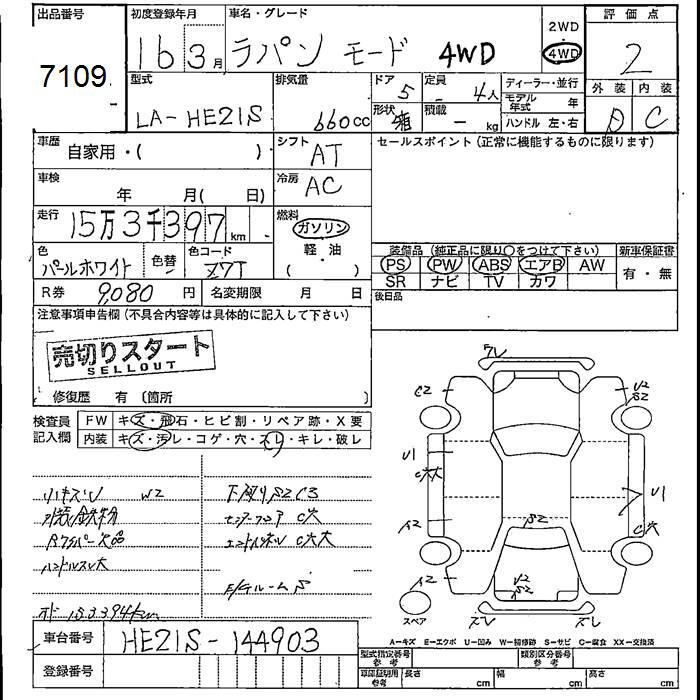 出品番号 初度登録年月 車名・グレード 2WD 評価点
7109 16 3月 ラパン モード 4WD 4WD 2
型式 排気量 ドア 5 定員 4人 ディーラー・並行 外装 内装
LA-HE21S 660cc 形状 箱 積載 - kg モデル年式 年 D C
ハンドル 左・右
車歴 自家用・( ) シフト AT セールスポイント(正常に機能するものに限ります)
車検 年 月( 日) 冷房 AC
走行 15万3千397km 燃料 ガソリン
軽・油
( )
色 パールホワイト 色替 色コード Z7T
装備品(純正品に限り○をつけて下さい) 新車保証書
PS PW ABS エアB AW 有・無
SR ナビ TV カワ
R券 9,080円 名変期限 月 日 後日品
注意事項申告欄(不具合内容等は具体的に記入して下さい)
売切りスタート
SELLOUT
修復歴 有(箇所
検査員記入欄 FW キズ・飛石・ヒビ割・リペア跡・X要
内装 キズ・汚レ・コゲ・穴・スレ・キレ・破レ
小キズU W2 下廻りS2C3
鉄粉 C穴
Rワイパー欠品 C穴大
ハンドルスレ大
E/GルームS
ワレ
C2 U2
S2
U1 U1
C穴大 C穴
A2 S2
A2 U2
S2
スペア ズレ ズレ
車台番号 HE21S-144903
A-キズ E-エクボ U-凹み W-補修跡 S-サビ C-腐食 XX-交換済
登録番号
型式指定番号 参考 類別区分番号 参考
車庫証明用 参考 長さ cm 幅 cm 高さ cm